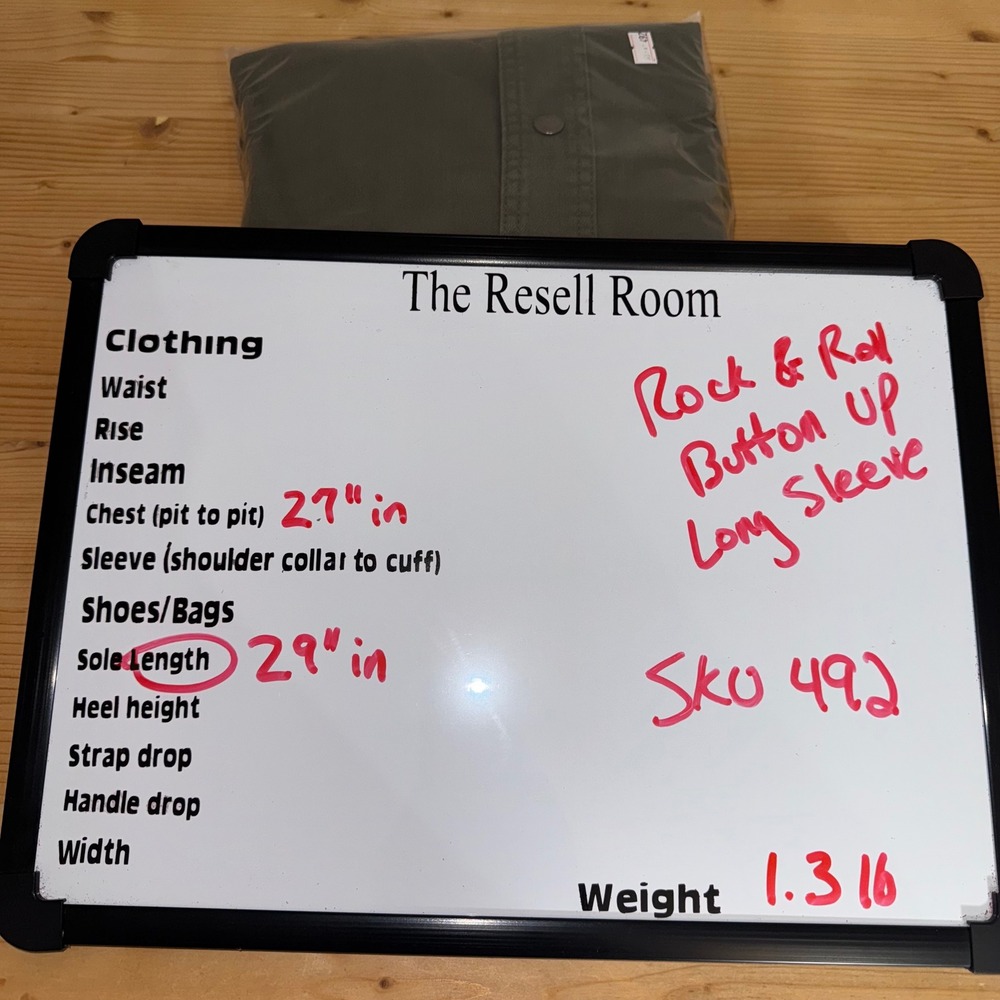 The Resell Room
Clothing
Waist
Rise
Inseam
Chest (pit to pit) 27" in
Sleeve (shoulder collar to cuff)
Shoes/Bags
Sole Length 29" in
Heel height
Strap drop
Handle drop
Width
Rock & Roll
Button UP
Long Sleeve
SKU 492
Weight 1.3 lb